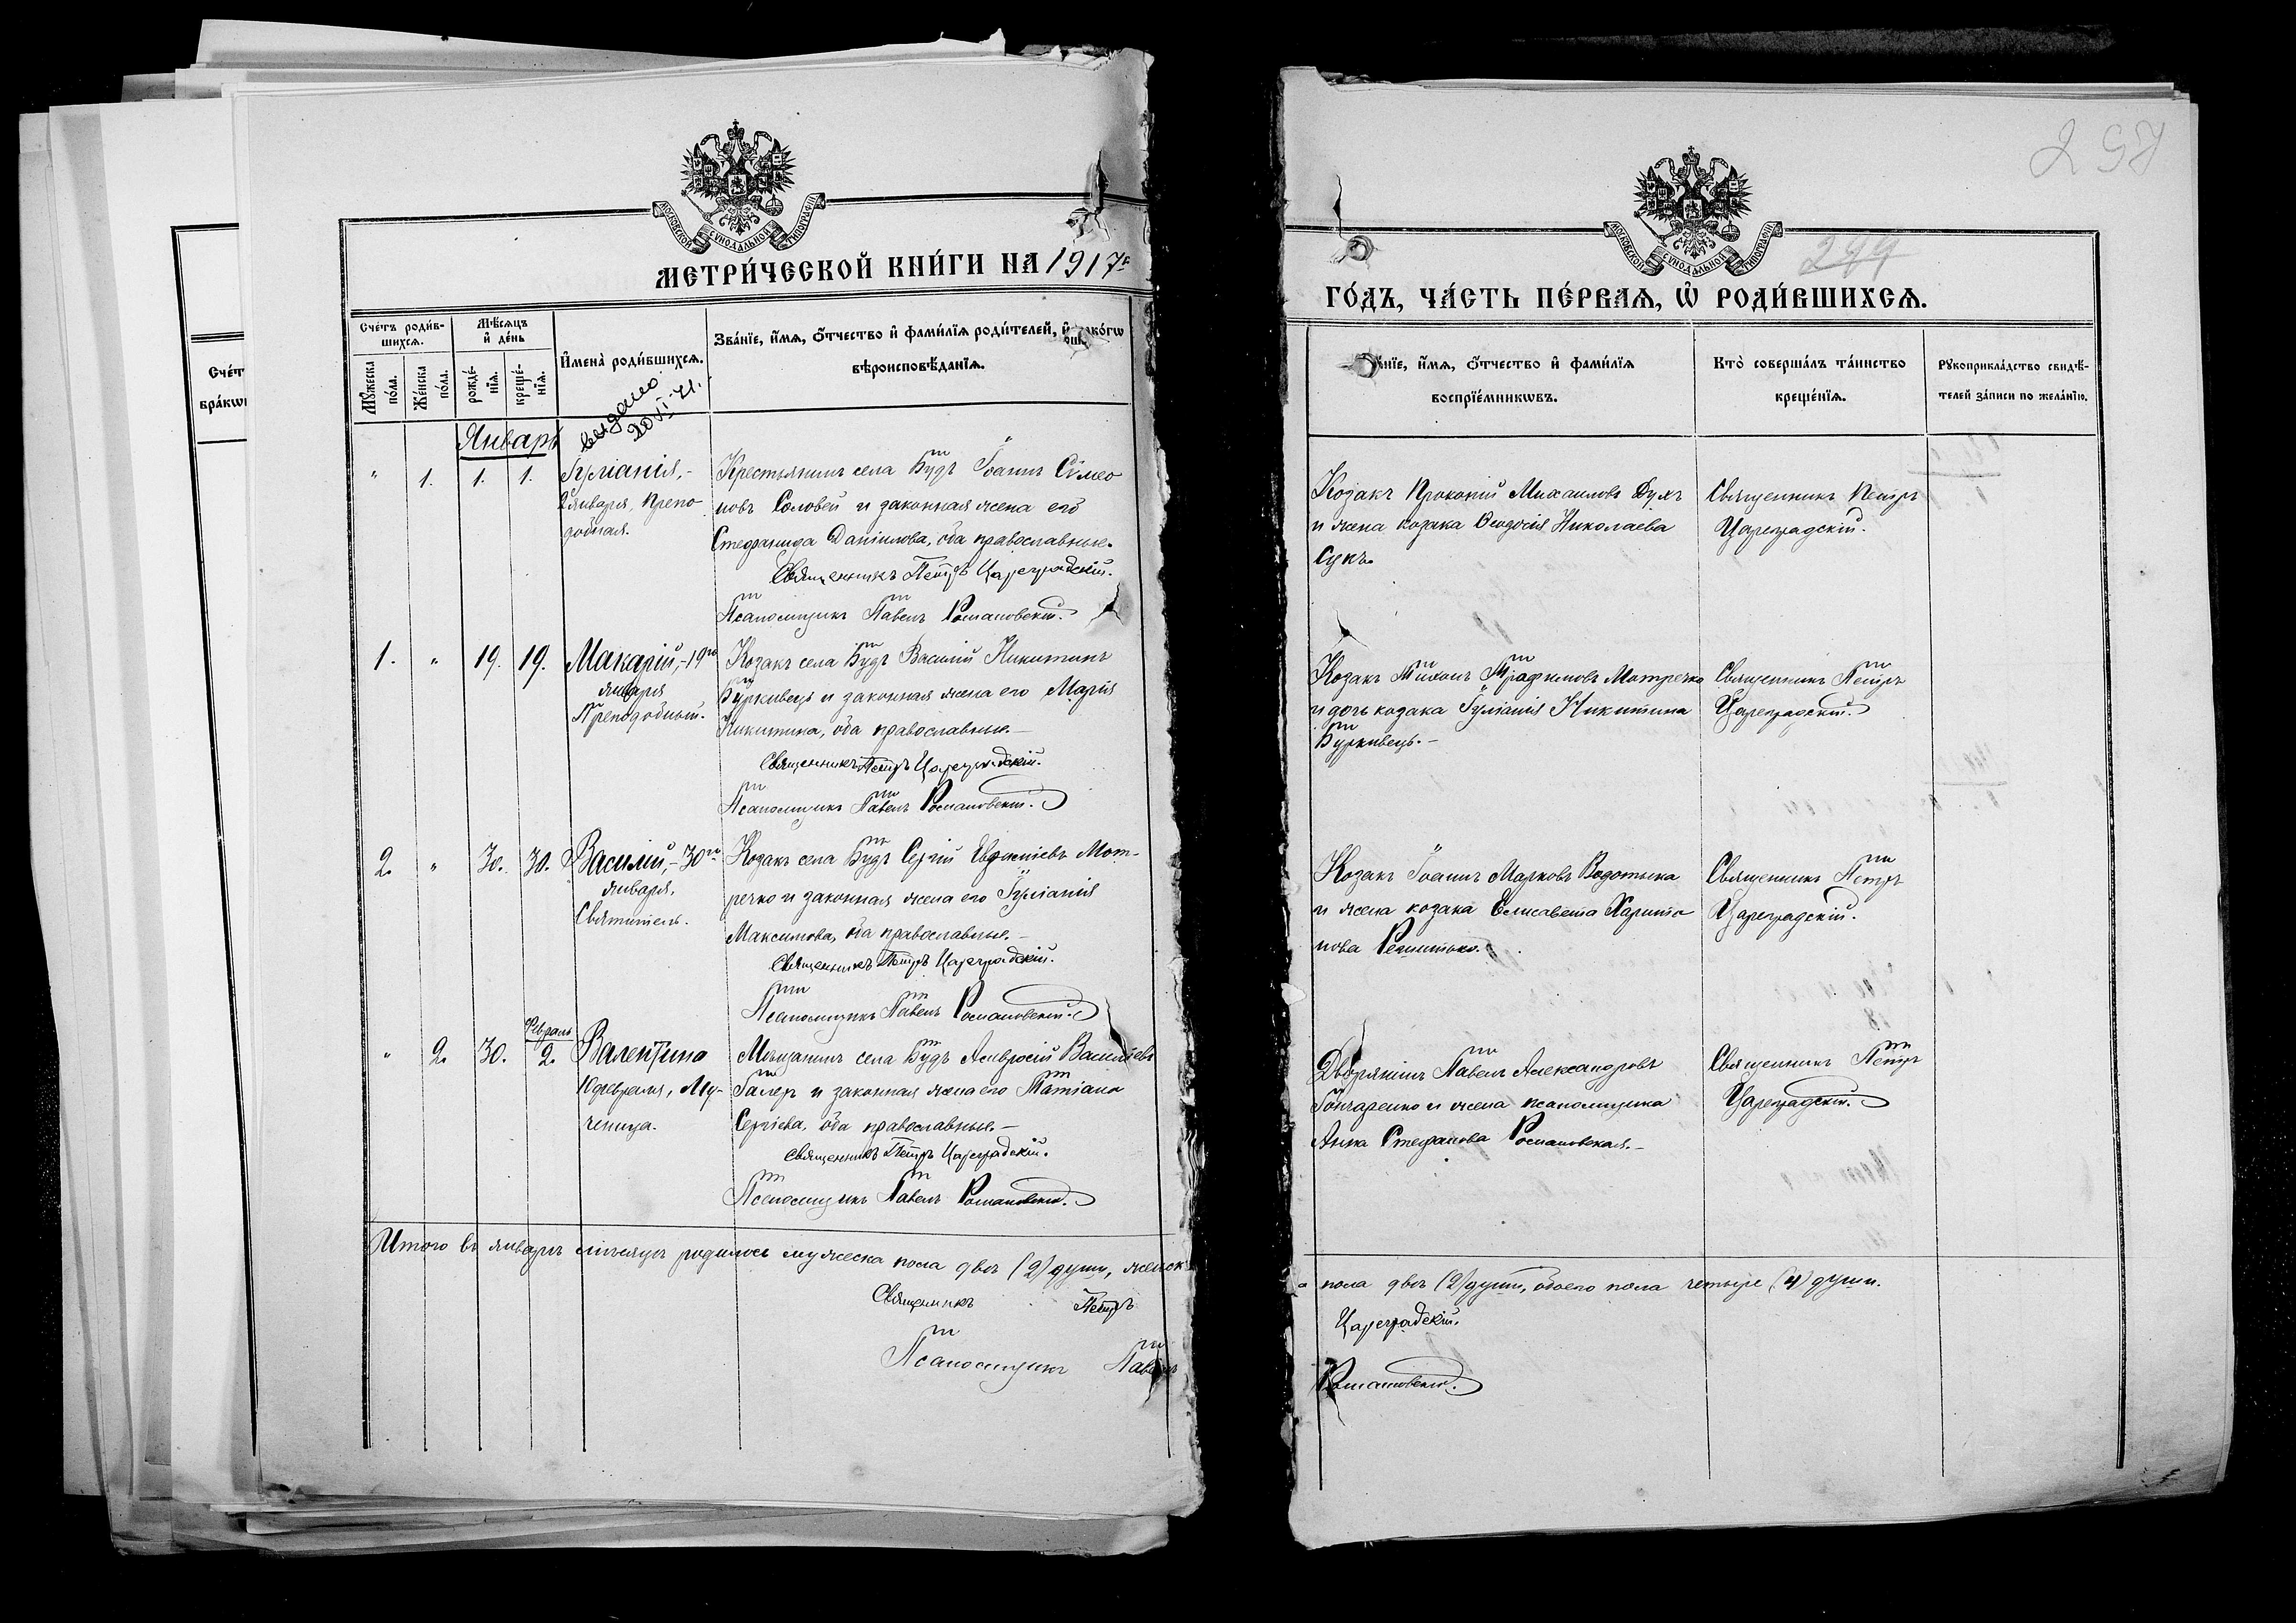 МОСКОВСКОЙ СѴНОДАЛЬНОЙ ТИПОГРАФІИ
МЕТРИ́ЧЕСКОЙ КНИ́ГИ НА 1917 г.
Сче́тъ роди́в-
шихсѧ.
Мѣ́сѧцъ
и҆ де́нь
Мꙋ́жеска по́ла.
Же́нска по́ла.
рожде́-нїѧ.
креще́-нїѧ.
И҆мена̀ роди́вшихсѧ.
Зва́нїе, и҆́мѧ, ѻ҆́тчество и҆ фами́лїѧ роди́телей, и҆
вѣроисповѣ́данїѧ.
Сче́т
бра́кѡ
выдано
20 XI-71.
Январь
" 1. 1. 1. Іуліанія,-
января, Препо-
добная.
Крестьянинъ села Будъ Іоаннъ Сѵмео
новъ Соловей и законная жена его
Стефанида Даніилова, оба православные.
Священникъ Петръ Цареградскій.
Псаломщикъ Павелъ Романовскій.
1. " 19. 19. Макарій,-19го
января
Преподобный.
Козакъ села Будъ Василій Никитинъ
Буркивець и законная жена его Марія
Никитина, оба православные.-
Священникъ Петръ Цареградскій.
Псаломщикъ Павелъ Романовскій.
2. " 30. 30. Василій,-30го
января,
Святитель.
Козакъ села Будъ Сергій Евфиміевъ Мот-
речко и законная жена его Іуліанія
Максимова, оба православные.-
Священникъ Петръ Цареградскій.
Псаломщикъ Павелъ Романовскій.
" 2. 30. Февраль 2. Валентина
10 февраля, Му-
ченица.
Мѣщанинъ села Будъ Амвросій Васильевъ
Галеръ и законная жена его Татіана
Сергіева, оба православные.-
Священникъ Петръ Цареградскій.
Псаломщикъ Павелъ Романовскій.
Итого въ январѣ мѣсяцѣ родилось мужеска пола двѣ (2) души, женск
Священникъ Петръ
Псаломщикъ Павелъ
МОСКОВСКОЙ СѴНОДАЛЬНОЙ ТИПОГРАФІИ
299
ГО́ДЪ, ЧА́СТЬ ПЕ́РВАѦ, Ѽ РОДИ́ВШИХСѦ.
нїе, и҆́мѧ, ѻ҆́тчество и҆ фами́лїѧ
воспрїе́мникѡвъ.
Кто̀ соверша́лъ та́инство
креще́нїѧ.
Рꙋкоприкла́дство свидѣ́-
телей за́писи по жела́нїю.
Козакъ Прокопій Михаиловъ Духъ
и жена козака Ѳеодосія Николаева
Сукъ.
Священникъ Петръ
Цареградскій.
Козакъ Тихонъ Трофимовъ Мотречко
и дочь козака Іуліанія Никитина
Буркивець.-
Священникъ Петръ
Цареградскій.
Козакъ Іоаннъ Марковъ Водотыка
и жена козака Елисавета Харито
нова
Священникъ Петръ
Цареградскій.
Дворянинъ Павелъ Александровъ
Гончаренко и жена псаломщика
Анна Стефанова Романовская.-
Священникъ Петръ
Цареградскій.
а пола двѣ (2) души, обоего пола четыре (4) души.
Цареградскій.
Романовскій.